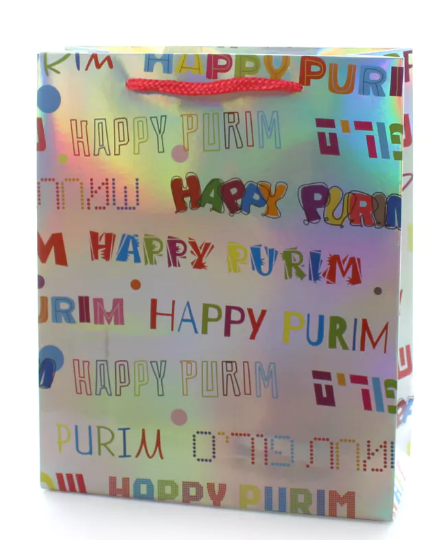 PURIM HAPPY PURIM
HAPPY PURIM פורים
שמח HAPPY PURIM
HAPPY PURIM
PURIM HAPPY PURIM
HAPPY PURIM פורים
PURIM שמח פורים
HAPPY PURIM